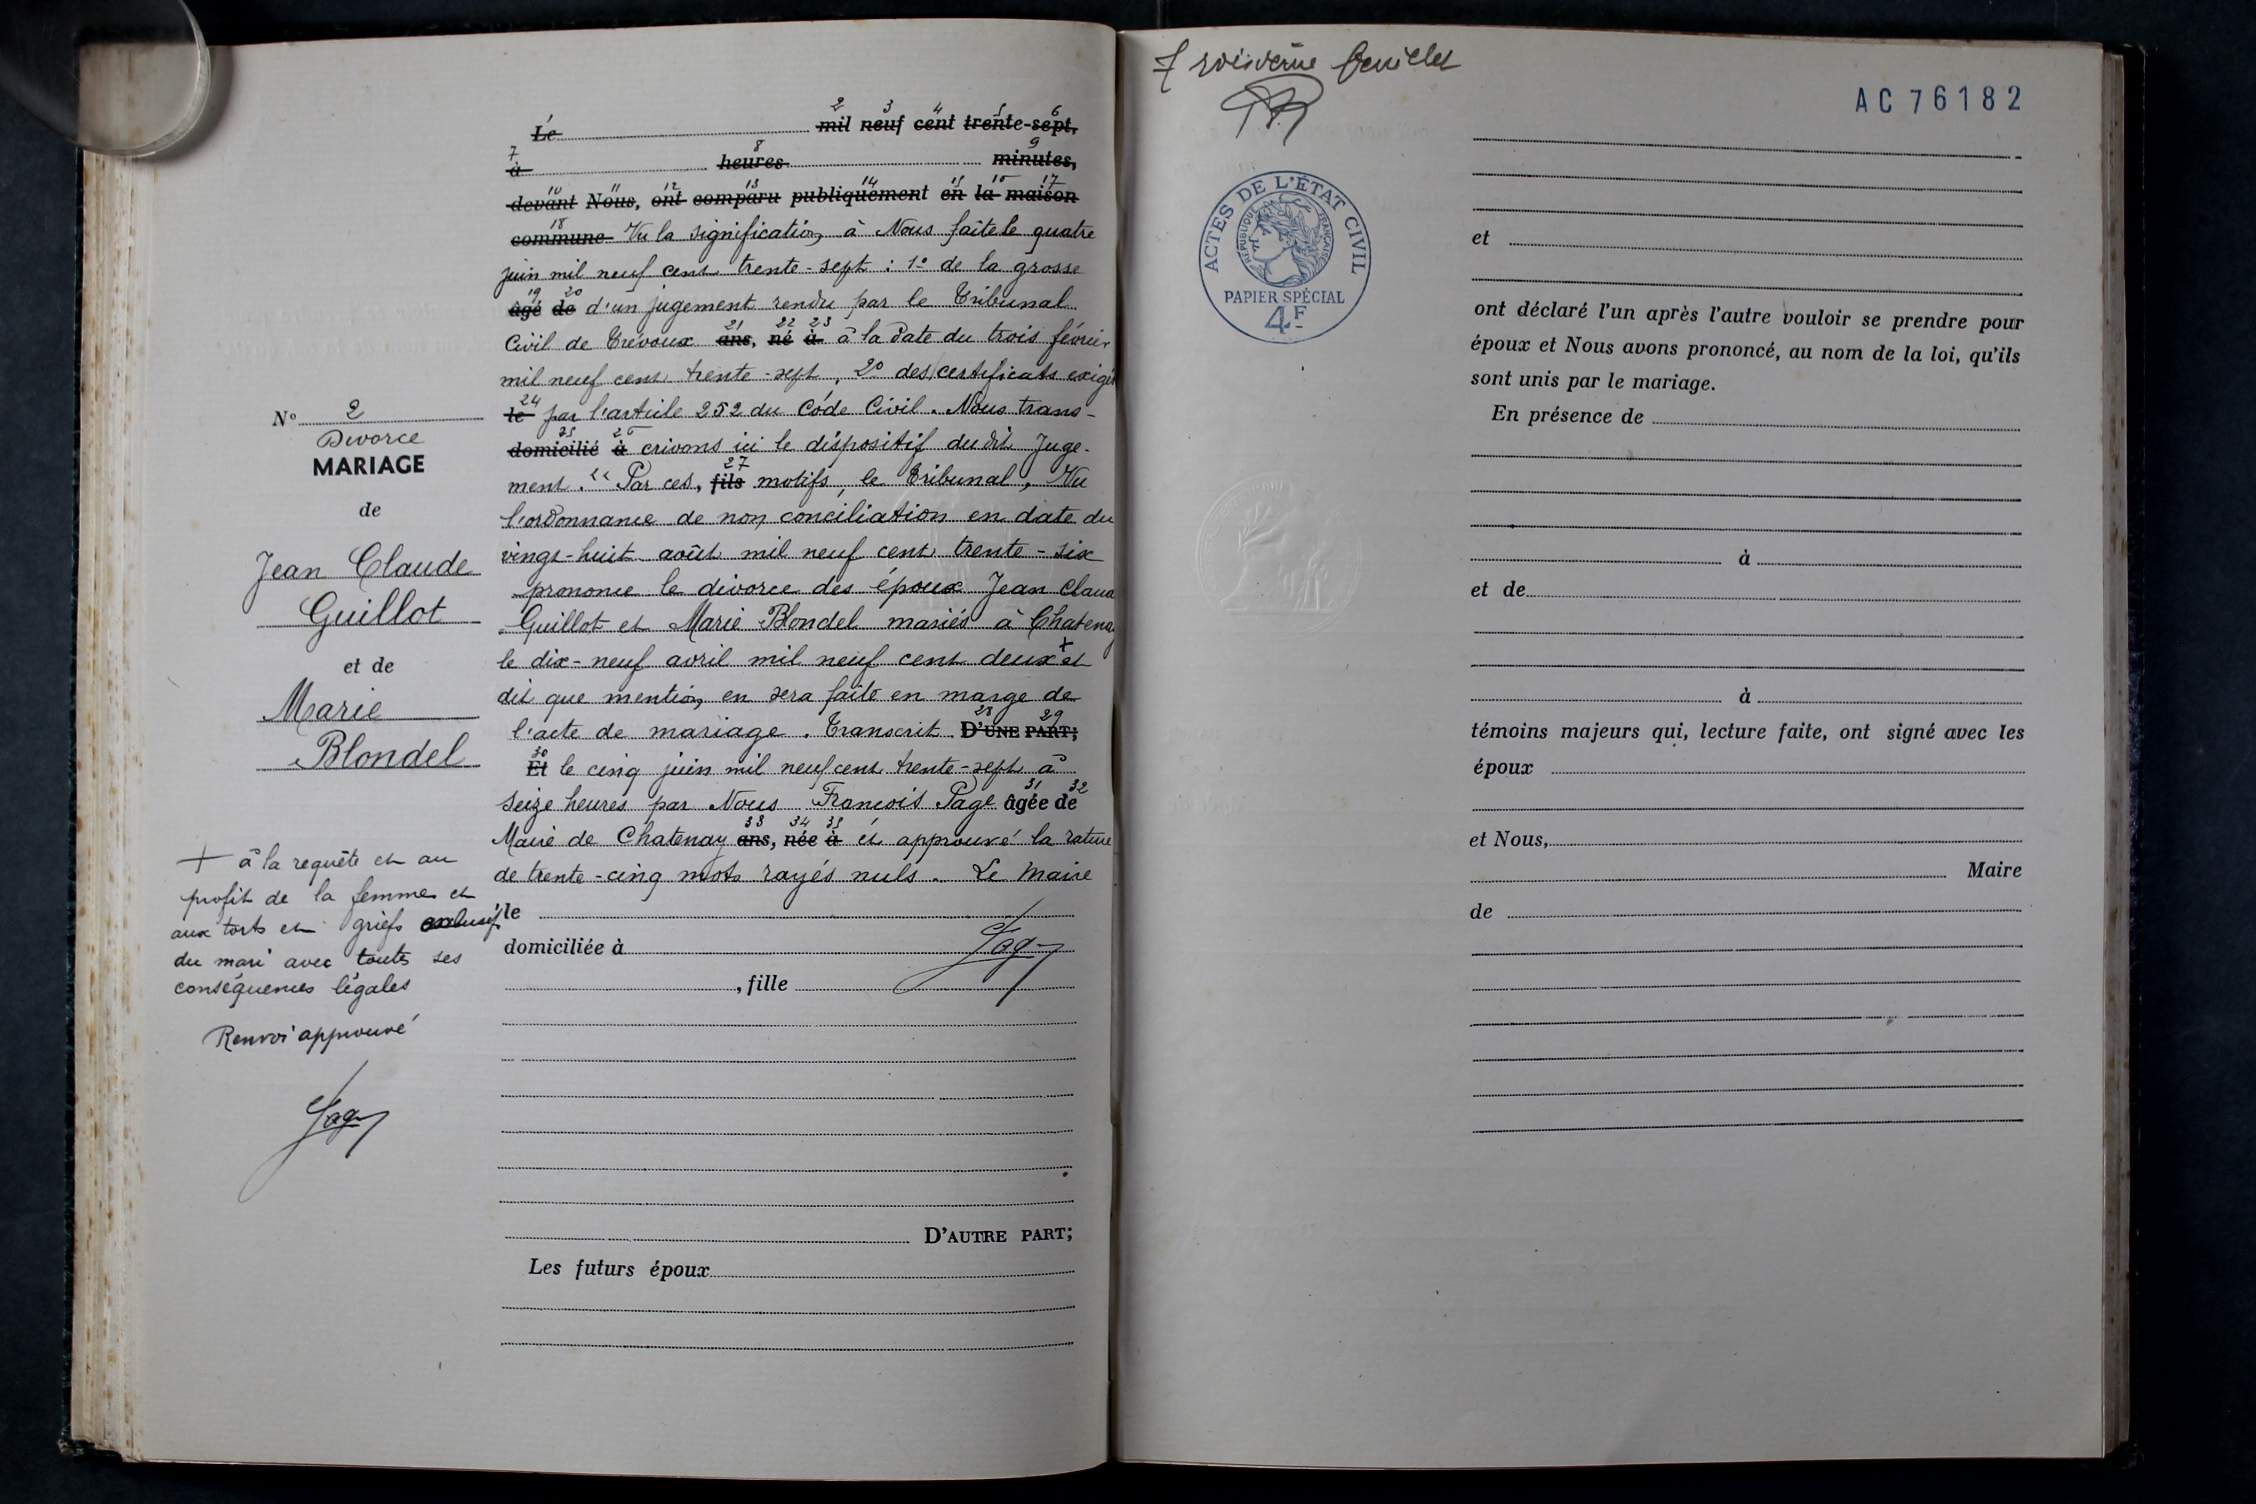 Le mil neuf cent trente-sept,
à heures minutes,
devant Nous, ont comparu publiquement en la maison
commune Vu la signification à Nous faite le quatre
juin mil neuf cent trente-sept : 1º de la grosse
âgé de d'un jugement rendu par le Tribunal
Civil de Trévoux ans, né à à la date du trois février
mil neuf cent trente-sept, 2º des certificats exigés
le par l'article 252 du Code Civil. Nous trans-
domicilié à crivons ici le dispositif dudit Juge-
ment. "Par ces, fils motifs, le Tribunal, Vu
l'ordonnance de non conciliation en date du
vingt-huit août mil neuf cent trente-six
prononce le divorce des époux Jean Claude
Guillot et Marie Blondel mariés à Chatenay
le dix-neuf avril mil neuf cent deux + et
dit que mention en sera faite en marge de
l'acte de mariage. Transcrit D'UNE PART;
Et le cinq juin mil neuf cent trente-sept à
seize heures par Nous François Page âgée de
Maire de Chatenay ans, née à et approuvé la rature
de trente-cinq mots rayés nuls. Le Maire
le
domiciliée à Page
, fille
D'AUTRE PART;
Les futurs époux
Nº 2
Divorce
MARIAGE
de
Jean Claude
Guillot
et de
Marie
Blondel
+ à la requête et au
profit de la femme et
aux torts et griefs exclusifs
du mari avec toutes ses
conséquences légales
Renvoi approuvé
Page
AC 76182
ACTES DE L'ÉTAT CIVIL
RÉPUBLIQUE FRANÇAISE
PAPIER SPÉCIAL
4F
et
ont déclaré l'un après l'autre vouloir se prendre pour
époux et Nous avons prononcé, au nom de la loi, qu'ils
sont unis par le mariage.
En présence de
à
et de
à
témoins majeurs qui, lecture faite, ont signé avec les
époux
et Nous,
Maire
de